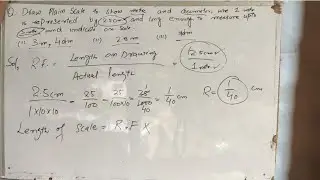 Q. Draw Plain Scale to show metre and decimeter when 1 metre
is represented by (2.5cm) and long enough to measure upto
5 metre and indicate on Scale
(i) 3m, 4dm (ii) 2.5m
Sol, R.F. = Length on Drawing / Actual length = 2.5cm / 1 metre
2.5cm / 1x10x10 = 25/100 = 25/100x10 = 25/1000 40 = 1/40 R = 1/40 cm
Length of Scale = R.F X